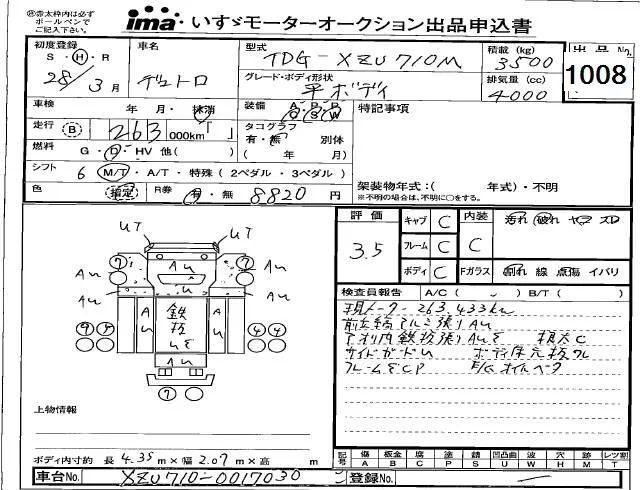 ㊟赤太枠内は必ず
ボールペンで
ご記入下さい。
ima いすゞモーターオークション出品申込書
初度登録 S・H・R 28年 3月
車名 デュトロ
型式 TDG-XZU710M
積載 (kg) 3500
出品No. 1008
グレード・ボディ形状 平ボディ
排気量 (cc) 4000
車検 年 月・抹消
装備 A P P C S W
特記事項
走行 B 263 000km「 」
タコグラフ 有・無 別体
( 年 月)
燃料 G・D・HV 他( )
シフト 6 M/T・A/T・特殊 (2ペダル・3ペダル)
架装物年式:( 年式)・不明
※不明の場合は、不明に○をする。
色 指定 R券 有・無 8820 円
評価 3.5
キャブ C 内装 C 汚れ 破れ ヤケ スレ
フレーム C
ボディ C Fガラス 割れ 線 点傷 イバリ
UT UT
⑦ Au ⑦
Au Au
Au Au
Au 鉄板 Au
④④ ④④
Au
⑦
検査員報告 A/C ( ) B/T ( )
現メーター 263,433km
アオリ内鉄板張り
サイドガードU
上物情報
ボディ内寸約 長 4.35m×幅 2.07m×高 m
記号 傷A 鈑金B 腐C 塗P 錆S 凹凸曲U 波W 穴H 跡M レツ割T
車台No. XZU710-0017030
登録No.